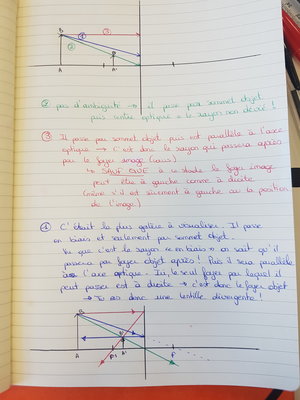 B
①
③
②
B'
A
A'
② pas d'ambiguité → il passe par sommet objet
puis centre optique = le rayon non dévié !
③ Il passe par sommet objet puis est parallèle à l'axe
optique → C'est donc le rayon qui passera après
par le foyer image
↳ SAUF QUE à ce stade le foyer image
peut être à gauche comme à droite
(même s'il est sûrement à gauche vu la position
de l'image)
① C'était le plus galère à visualiser. Il passe
en biais et seulement par sommet objet.
Vu que c'est le rayon « en biais » on sait qu'il
passera par foyer objet après ! Puis il sera parallèle
à l'axe optique. Ici, le seul foyer par lequel il
peut passer est à droite → c'est donc le foyer objet
→ Tu as donc une lentille divergente !
B
B'
A
F'
A'
F